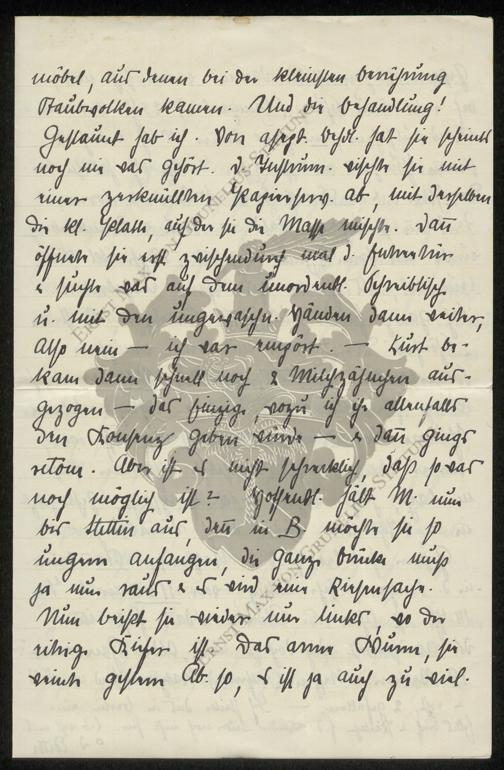 möbel, aus denen bei der kleinsten berührung
Staubwolken kamen. Und die behandlung!
Gestaunt hab ich. Von asept. behdl. hat sie scheints
noch nie was gehört. d. Instrum. wischte sie mit
einer zerknüllten Papierserv. ab, mit derselben
die kl. Platte, auf der sie die Masse mischte. Dañ
öffnete sie erst zwischendurch mal d.
& suchte was auf dem unordentl. Schreibtisch
u. mit den ungewaschn. Händen dann weiter,
Also nein — ich war empört. — Kurt be-
kam dann schnell noch 2 Milchzähnchen aus-
gezogen — das Einzige, wozu ich ihr allenfalls
den Konsenz geben würde — & dañ gings
retour. Aber ist es nicht schrecklich, daß so was
noch möglich ist? Hoffentl. hält M. nun
bis Stettin aus, deñ in B möchte sie so
ungern anfangen, die ganze brücke muß
ja nun raus & es wird eine Riesensache.
Nun beißt sie wieder nur links, wo der
eitrige Kiefer ist. Das arme Wurm, sie
weinte gestern Ab. so, es ist ja auch zu viel.
ERNST MAX VON GRUNELIUS-STIFTUNG
ERNST MAX VON GRUNELIUS-STIFTUNG